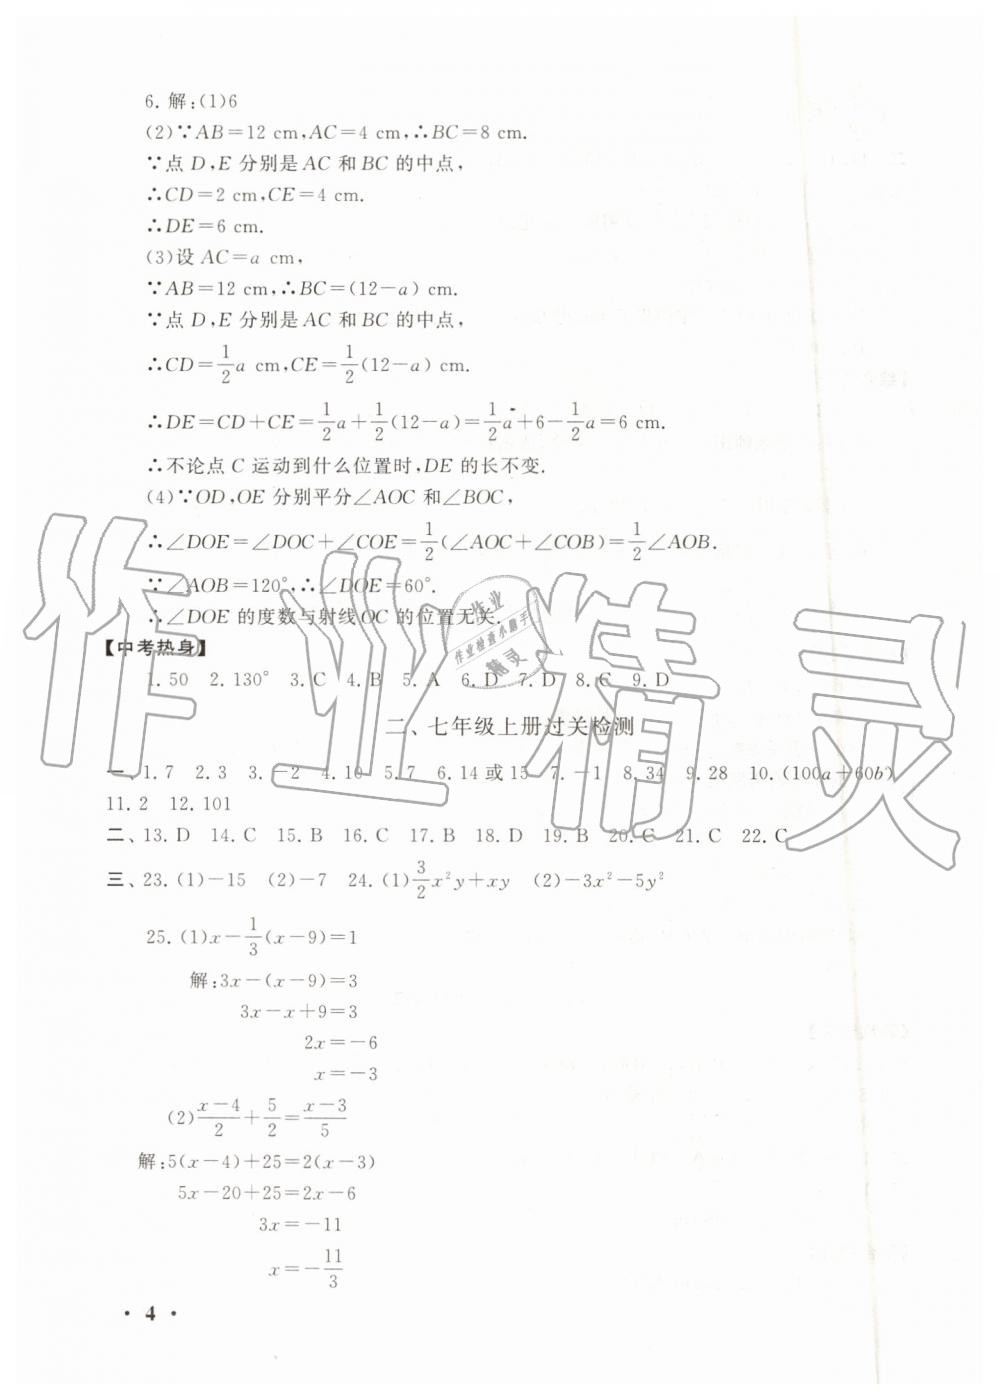 6. 解:(1)6
(2)∵AB=12 cm,AC=4 cm,∴BC=8 cm.
∵点 D,E 分别是 AC 和 BC 的中点,
∴CD=2 cm,CE=4 cm.
∴DE=6 cm.
(3)设 AC=a cm,
∵AB=12 cm,∴BC=(12-a) cm.
∵点 D,E 分别是 AC 和 BC 的中点,
∴CD=1/2a cm,CE=1/2(12-a) cm.
∴DE=CD+CE=1/2a+1/2(12-a)=1/2a+6-1/2a=6 cm.
∴不论点 C 运动到什么位置时,DE 的长不变.
(4)∵OD,OE 分别平分∠AOC 和∠BOC,
∴∠DOE=∠DOC+∠COE=1/2(∠AOC+∠COB)=1/2∠AOB.
∵∠AOB=120°,∴∠DOE=60°.
∴∠DOE 的度数与射线 OC 的位置无关.
【中考热身】
1. 50 2. 130° 3. C 4. B 5. A 6. D 7. D 8. C 9. D
二、七年级上册过关检测
一、1. 7 2. 3 3. -2 4. 10 5. 7 6. 14 或 15 7. -1 8. 34 9. 28 10. (100a+60b)
11. 2 12. 101
二、13. D 14. C 15. B 16. C 17. B 18. D 19. B 20. C 21. C 22. C
三、23. (1)-15 (2)-7 24. (1)3/2x²y+xy (2)-3x²-5y²
25. (1)x-1/3(x-9)=1
解:3x-(x-9)=3
3x-x+9=3
2x=-6
x=-3
(2)(x-4)/2+5/2=(x-3)/5
解:5(x-4)+25=2(x-3)
5x-20+25=2x-6
3x=-11
x=-11/3
· 4 ·
作业精灵
作业
作业检查小助手
精灵